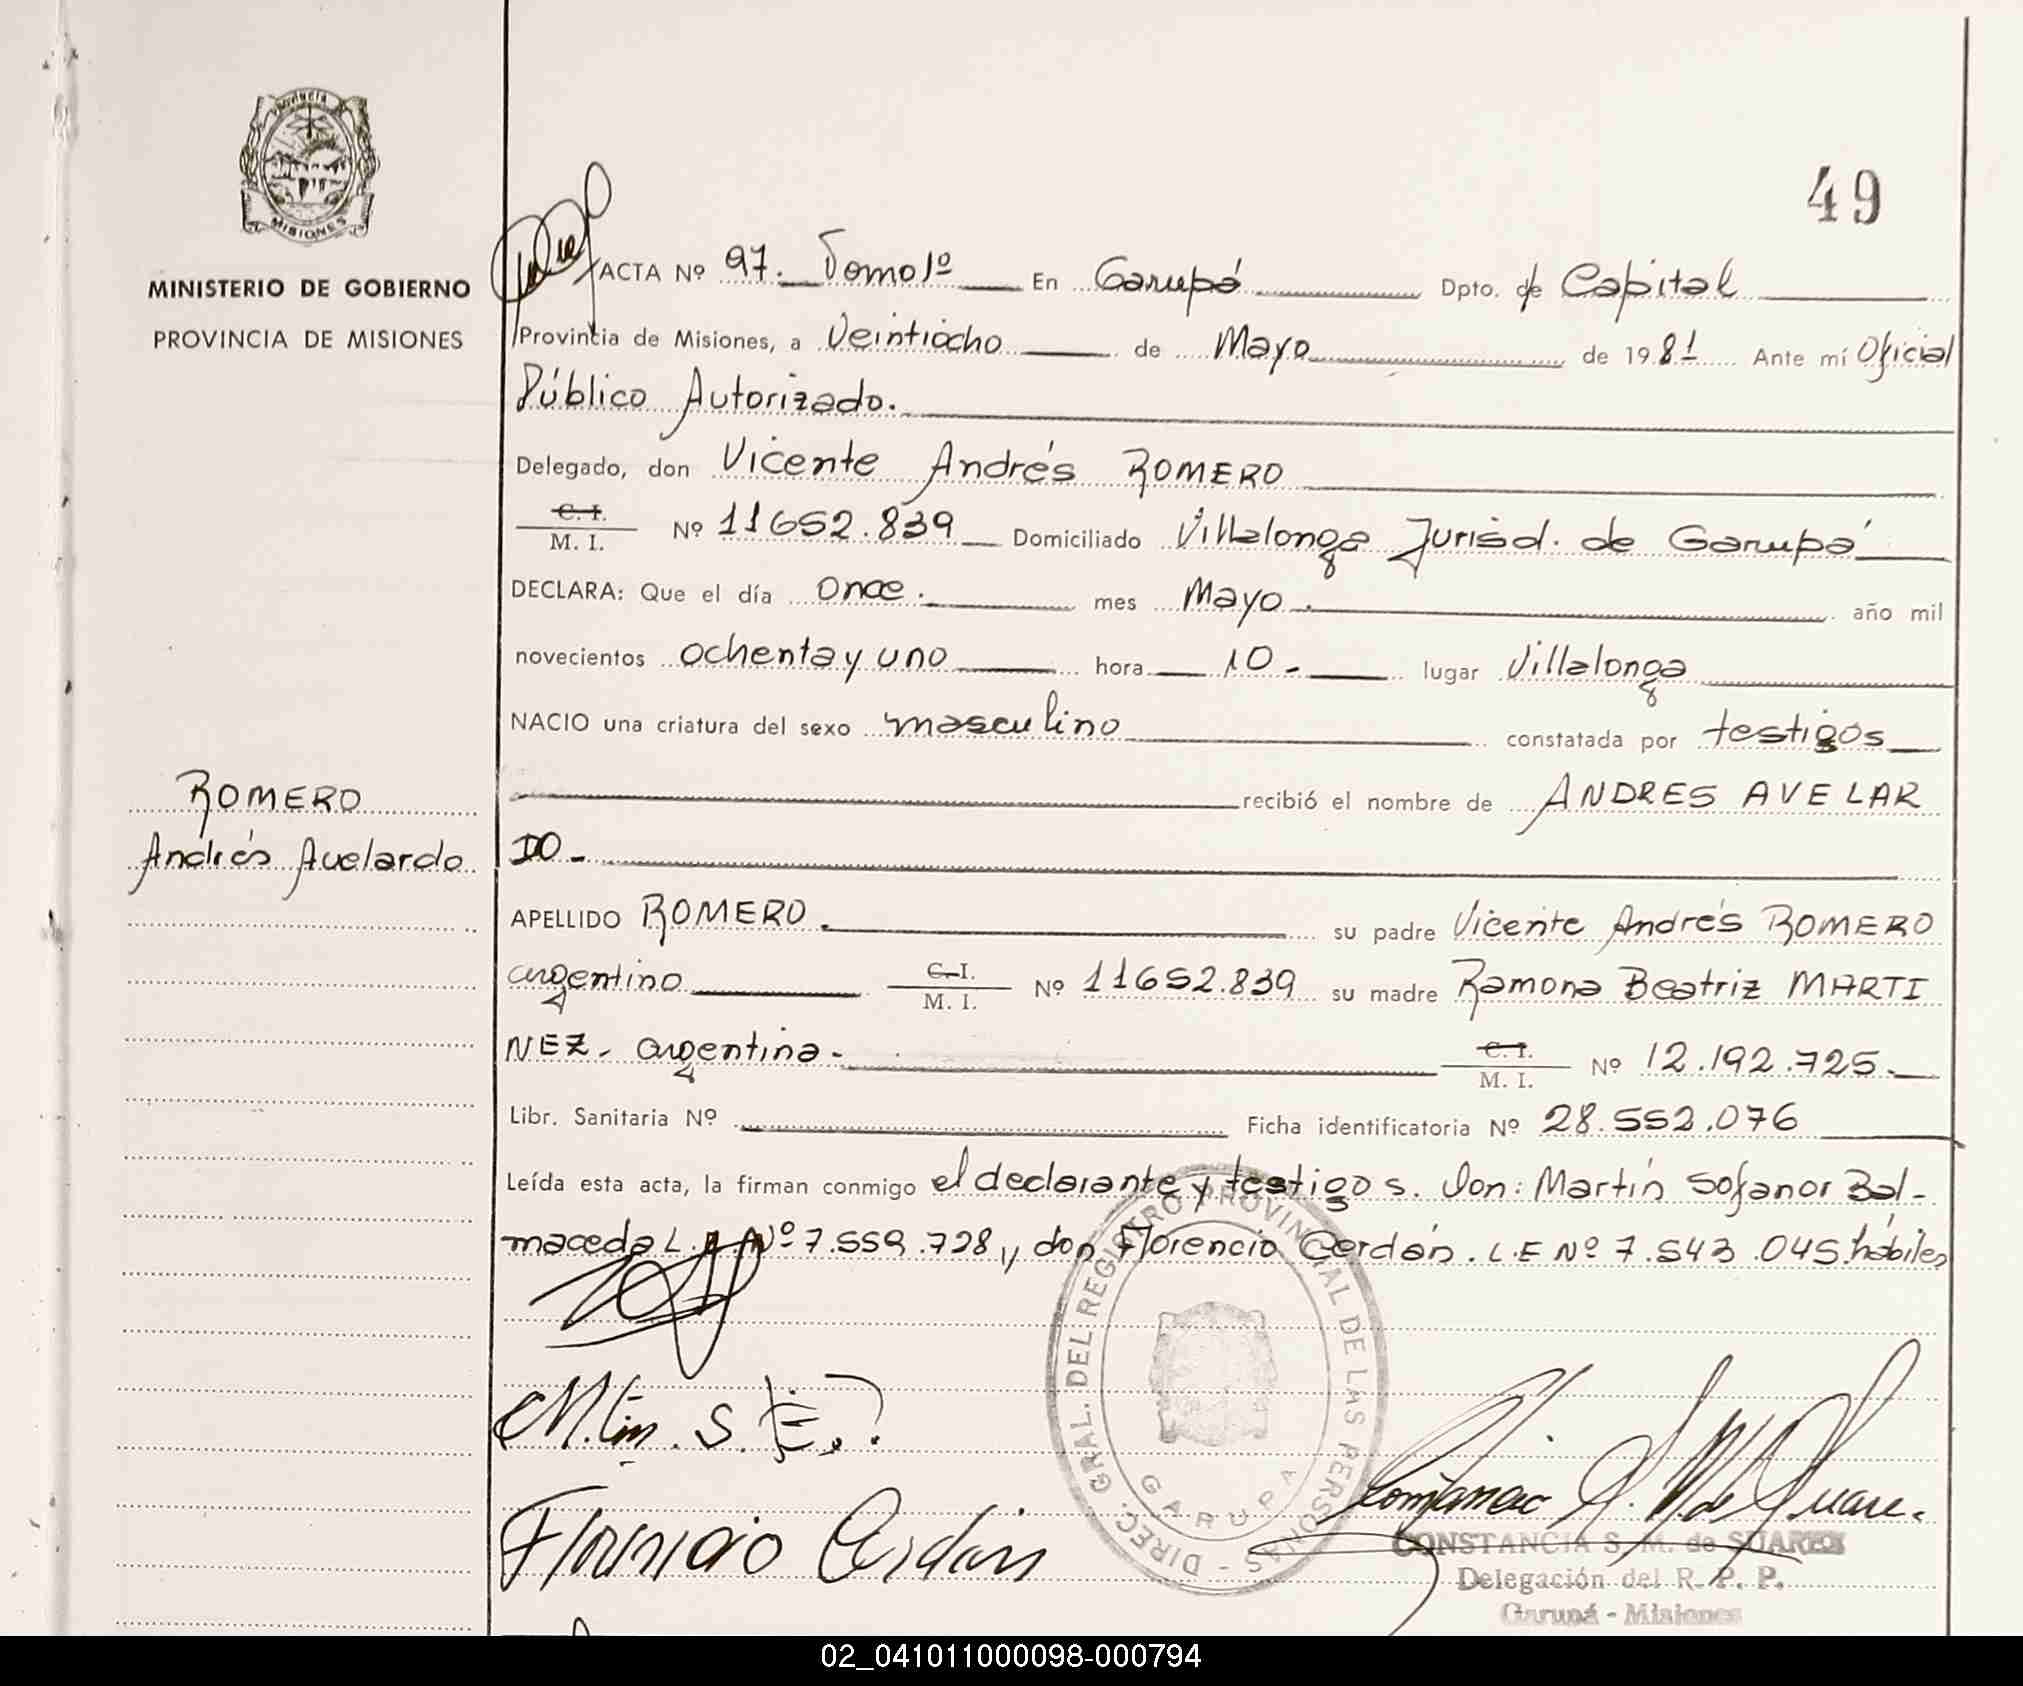 PROVINCIA
MISIONES
MINISTERIO DE GOBIERNO
PROVINCIA DE MISIONES
49
ACTA Nº 97. Tomo 1º En Garupá Dpto. de Capital
Provincia de Misiones, a Veintiocho de Mayo de 1981 Ante mí Oficial
Público Autorizado.
Delegado, don Vicente Andrés ROMERO
C. I.
M. I. Nº 11652.839 Domiciliado Villalonga Jurisd. de Garupá
DECLARA: Que el día once. mes Mayo. año mil
novecientos ochenta y uno hora 10 - lugar Villalonga
NACIO una criatura del sexo masculino constatada por testigos
recibió el nombre de ANDRES AVELAR
DO -
ROMERO
Andrés Avelardo
APELLIDO ROMERO. su padre Vicente Andrés ROMERO
argentino C. I. M. I. Nº 11652.839 su madre Ramona Beatriz MARTI
NEZ - argentina - C. I. M. I. Nº 12.192.725.
Libr. Sanitaria Nº Ficha identificatoria Nº 28.552.076
Leída esta acta, la firman conmigo el declarante y testigos. Don: Martín Sofanor Bal-
maceda L. Nº 7.559.728 y don Florencio Cerdán. L.E Nº 7.543.045. hábiles
Florencio Cerdán
DIREC. GRAL. DEL REGISTRO PROVINCIAL DE LAS PERSONAS -
GARUPA
CONSTANCIA S. M. de SUAREZ
Delegación del R. P. P.
Garupá - Misiones
02_041011000098-000794